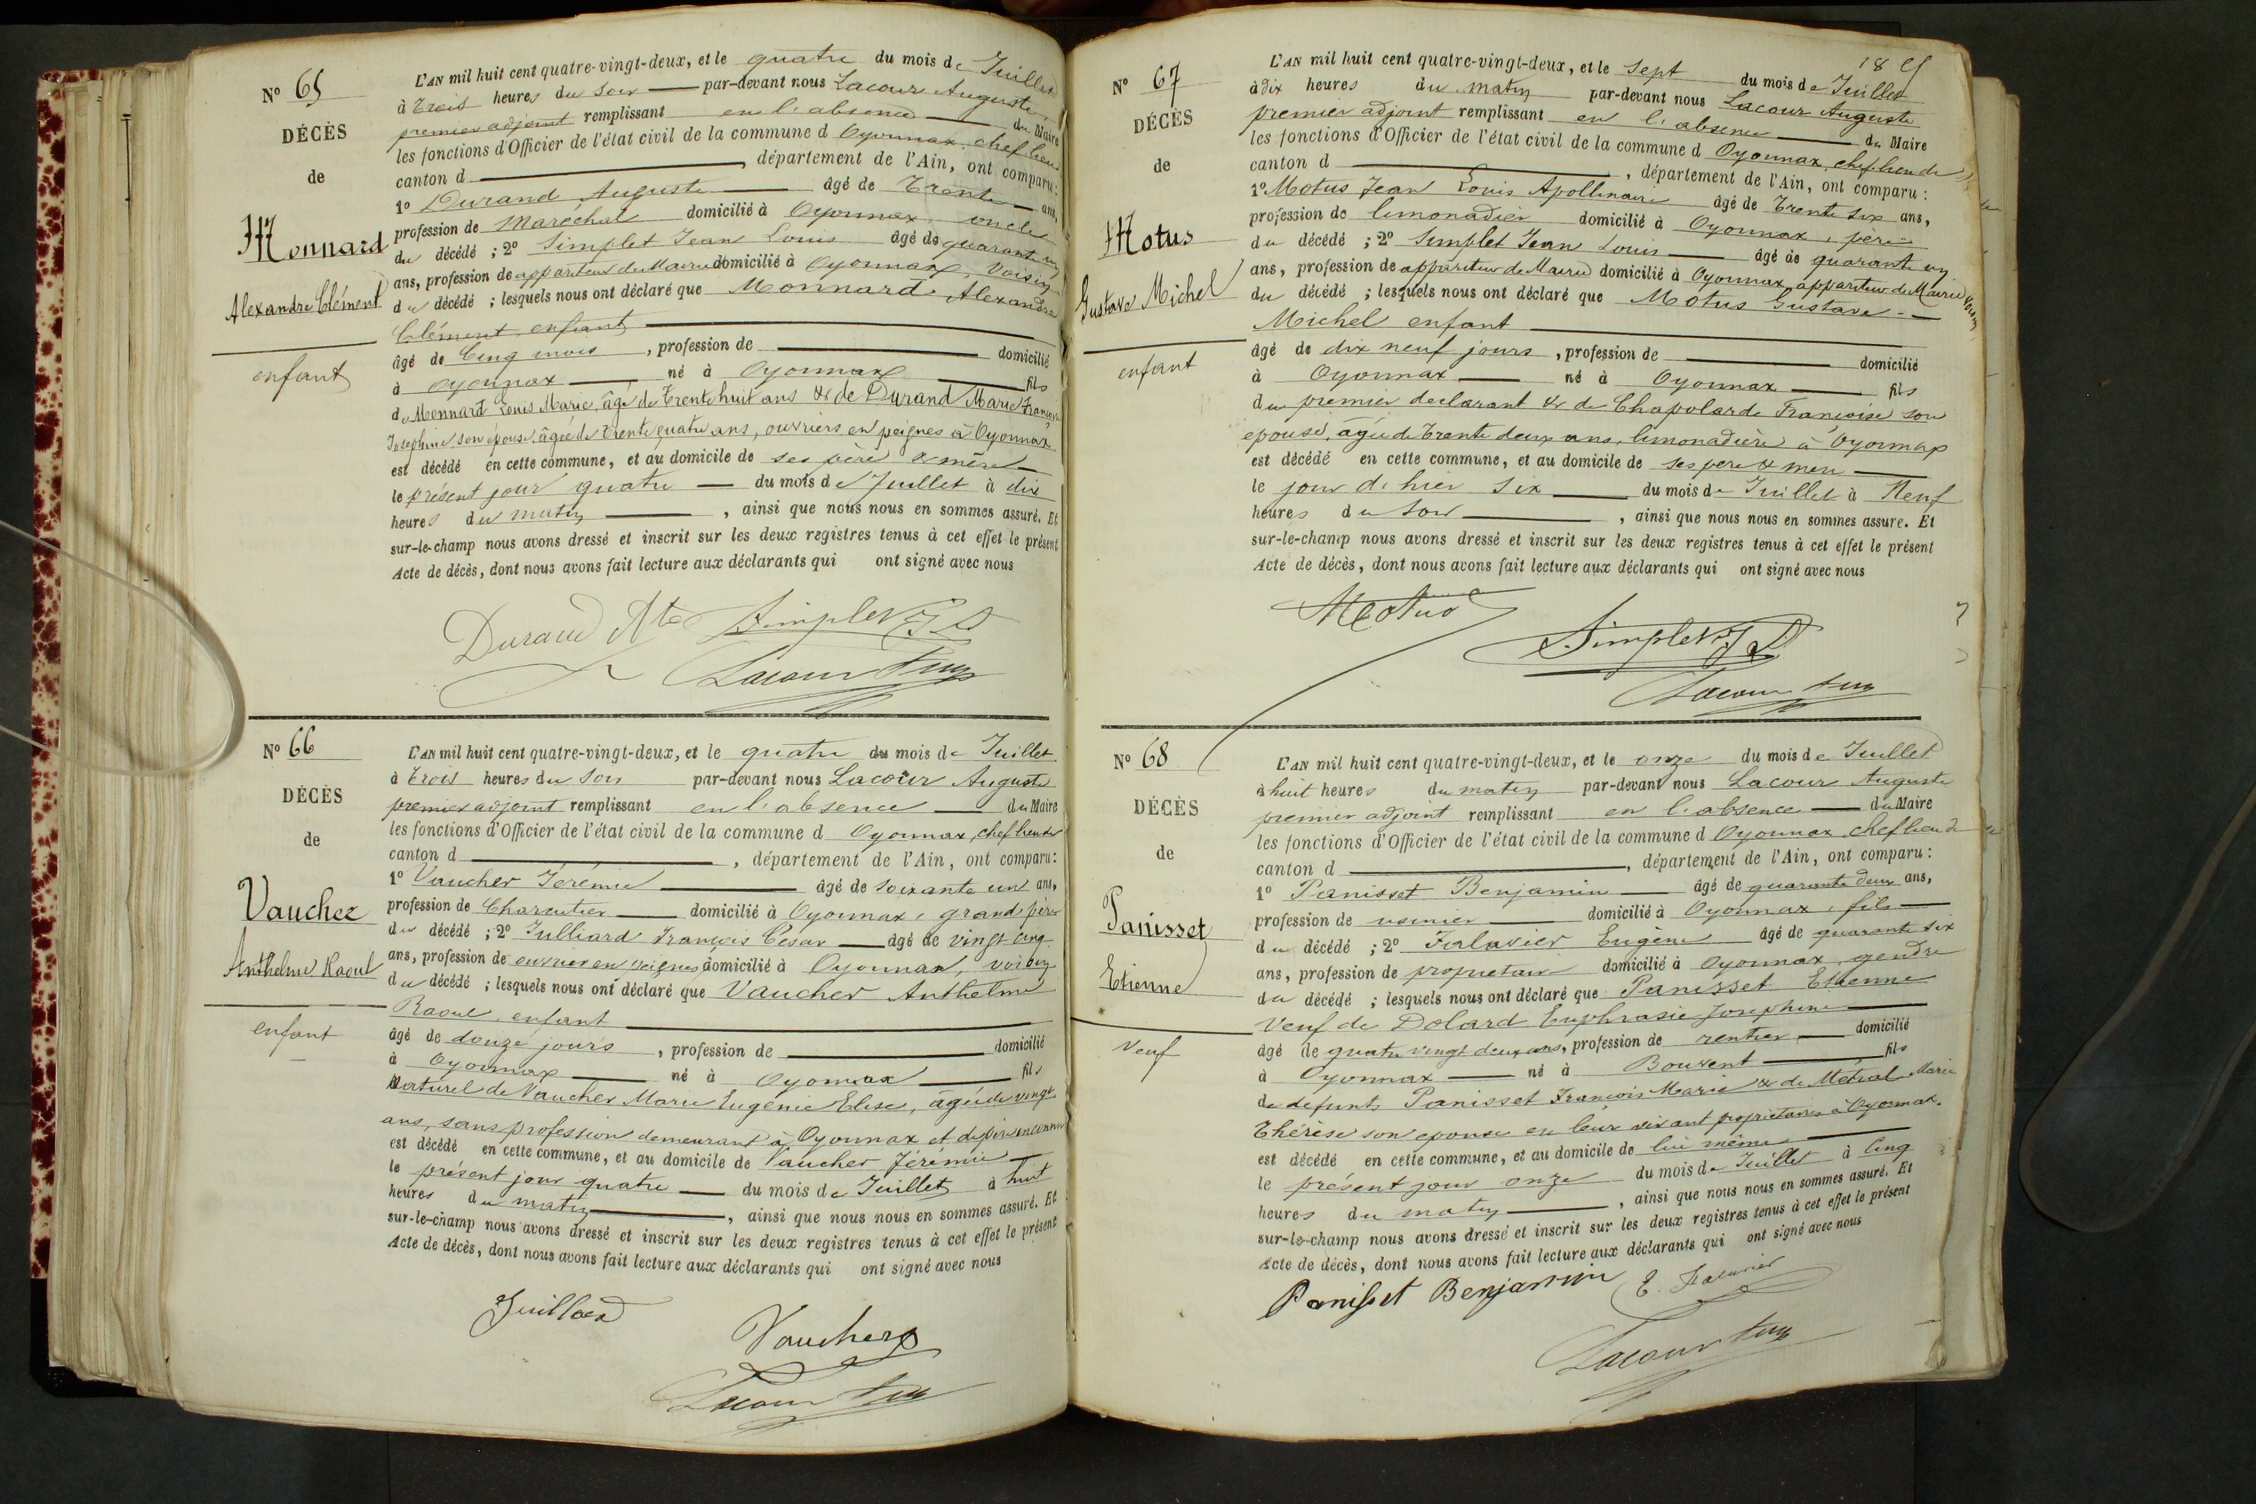 Nº 65
DÉCÈS
de
Monnard
Alexandre Clément
enfant
L'AN mil huit cent quatre-vingt-deux, et le quatre du mois de Juillet
à Trois heures du Soir par-devant nous Lacour Auguste,
premier adjoint remplissant en l'absence du Maire
les fonctions d'Officier de l'état civil de la commune d Oyonnax, chef lieu
canton d , département de l'Ain, ont comparu:
1º Durand Auguste âgé de Trente ans,
profession de Maréchal domicilié à Oyonnax oncle
du décédé ; 2º Simplet Jean Louis âgé de quarante un
ans, profession de appariteur de Mairie domicilié à Oyonnax, Voisin
du décédé ; lesquels nous ont déclaré que Monnard Alexandre
Clément, enfant
âgé de Cinq mois , profession de domicilié
à Oyonnax né à Oyonnax fils
de Monnard Louis Marie, âgé de Trente huit ans & de Durand Marie Françoise
Joséphine son épouse, âgée de Trente quatre ans, ouvriers en peignes à Oyonnax
est décédé en cette commune, et au domicile de ses père & mère
le présent jour quatre du mois de Juillet à dix
heures du matin , ainsi que nous nous en sommes assuré. Et
sur-le-champ nous avons dressé et inscrit sur les deux registres tenus à cet effet le présent
Acte de décès, dont nous avons fait lecture aux déclarants qui ont signé avec nous
Durand Ate Simplet J L
Lacour Aug
Nº 66
DÉCÈS
de
Vaucher
Anthelme Raoul
enfant
L'AN mil huit cent quatre-vingt-deux, et le quatre du mois de Juillet
à Trois heures du Soir par-devant nous Lacour Auguste
premier adjoint remplissant en l'absence du Maire
les fonctions d'Officier de l'état civil de la commune d Oyonnax, chef lieu de
canton d , département de l'Ain, ont comparu:
1º Vaucher Jérémie âgé de soixante un ans,
profession de Charcutier domicilié à Oyonnax, grand père
du décédé ; 2º Julliard François César âgé de vingt cinq
ans, profession de ouvrier en peignes domicilié à Oyonnax, voisin
du décédé ; lesquels nous ont déclaré que Vaucher Anthelme
Raoul, enfant
âgé de douze jours , profession de domicilié
à Oyonnax né à Oyonnax fils
Naturel de Vaucher Marie Eugénie Elise, âgée de vingt
ans, sans profession demeurant à Oyonnax et de père inconnu
est décédé en cette commune, et au domicile de Vaucher Jérémie
le présent jour quatre du mois de Juillet à huit
heures du matin , ainsi que nous nous en sommes assuré. Et
sur-le-champ nous avons dressé et inscrit sur les deux registres tenus à cet effet le présent
Acte de décès, dont nous avons fait lecture aux déclarants qui ont signé avec nous
Juillard
Vaucher
Lacour Aug
18
Nº 67
DÉCÈS
de
Motus
Gustave Michel
enfant
L'AN mil huit cent quatre-vingt-deux, et le Sept du mois de Juillet
à dix heures du matin par-devant nous Lacour Auguste
premier adjoint remplissant en l'absence du Maire
les fonctions d'Officier de l'état civil de la commune d Oyonnax, chef lieu de
canton d , département de l'Ain, ont comparu:
1º Motus Jean Louis Apollinaire âgé de Trente Six ans,
profession de limonadier domicilié à Oyonnax, père
du décédé ; 2º Simplet Jean Louis âgé de quarante un
ans, profession de appariteur de Mairie domicilié à Oyonnax, appariteur de Mairie Voisin
du décédé ; lesquels nous ont déclaré que Motus Gustave
Michel enfant
âgé de dix neuf jours , profession de domicilié
à Oyonnax né à Oyonnax fils
du premier déclarant & de Chapolarde Françoise son
épouse, âgée de Trente deux ans, limonadière à Oyonnax
est décédé en cette commune, et au domicile de ses père & mère
le jour d'hier Six du mois de Juillet à Neuf
heures du Soir , ainsi que nous nous en sommes assuré. Et
sur-le-champ nous avons dressé et inscrit sur les deux registres tenus à cet effet le présent
Acte de décès, dont nous avons fait lecture aux déclarants qui ont signé avec nous
Motus
Simplet J L
Lacour Aug
Nº 68
DÉCÈS
de
Panisset
Etienne
Veuf
L'AN mil huit cent quatre-vingt-deux, et le onze du mois de Juillet
à huit heures du matin par-devant nous Lacour Auguste
premier adjoint remplissant en l'absence du Maire
les fonctions d'Officier de l'état civil de la commune d Oyonnax, chef lieu de
canton d , département de l'Ain, ont comparu:
1º Panisset Benjamin âgé de quarante deux ans,
profession de usinier domicilié à Oyonnax, fils
du décédé ; 2º Falavier Eugène âgé de quarante six
ans, profession de propriétaire domicilié à Oyonnax, gendre
du décédé ; lesquels nous ont déclaré que Panisset Etienne
Veuf de Dolard Euphrasie Joséphine
âgé de quatre vingt deux ans, profession de rentier domicilié
à Oyonnax né à Bouvent fils
de défunts Panisset François Marie & de Métral Marie
Thérèse son épouse en leur vivant propriétaires à Oyonnax.
est décédé en cette commune, et au domicile de lui même
le présent jour onze du mois de Juillet à Cinq
heures du matin , ainsi que nous nous en sommes assuré. Et
sur-le-champ nous avons dressé et inscrit sur les deux registres tenus à cet effet le présent
Acte de décès, dont nous avons fait lecture aux déclarants qui ont signé avec nous
Panisset Benjamin E. Falavier
Lacour Aug